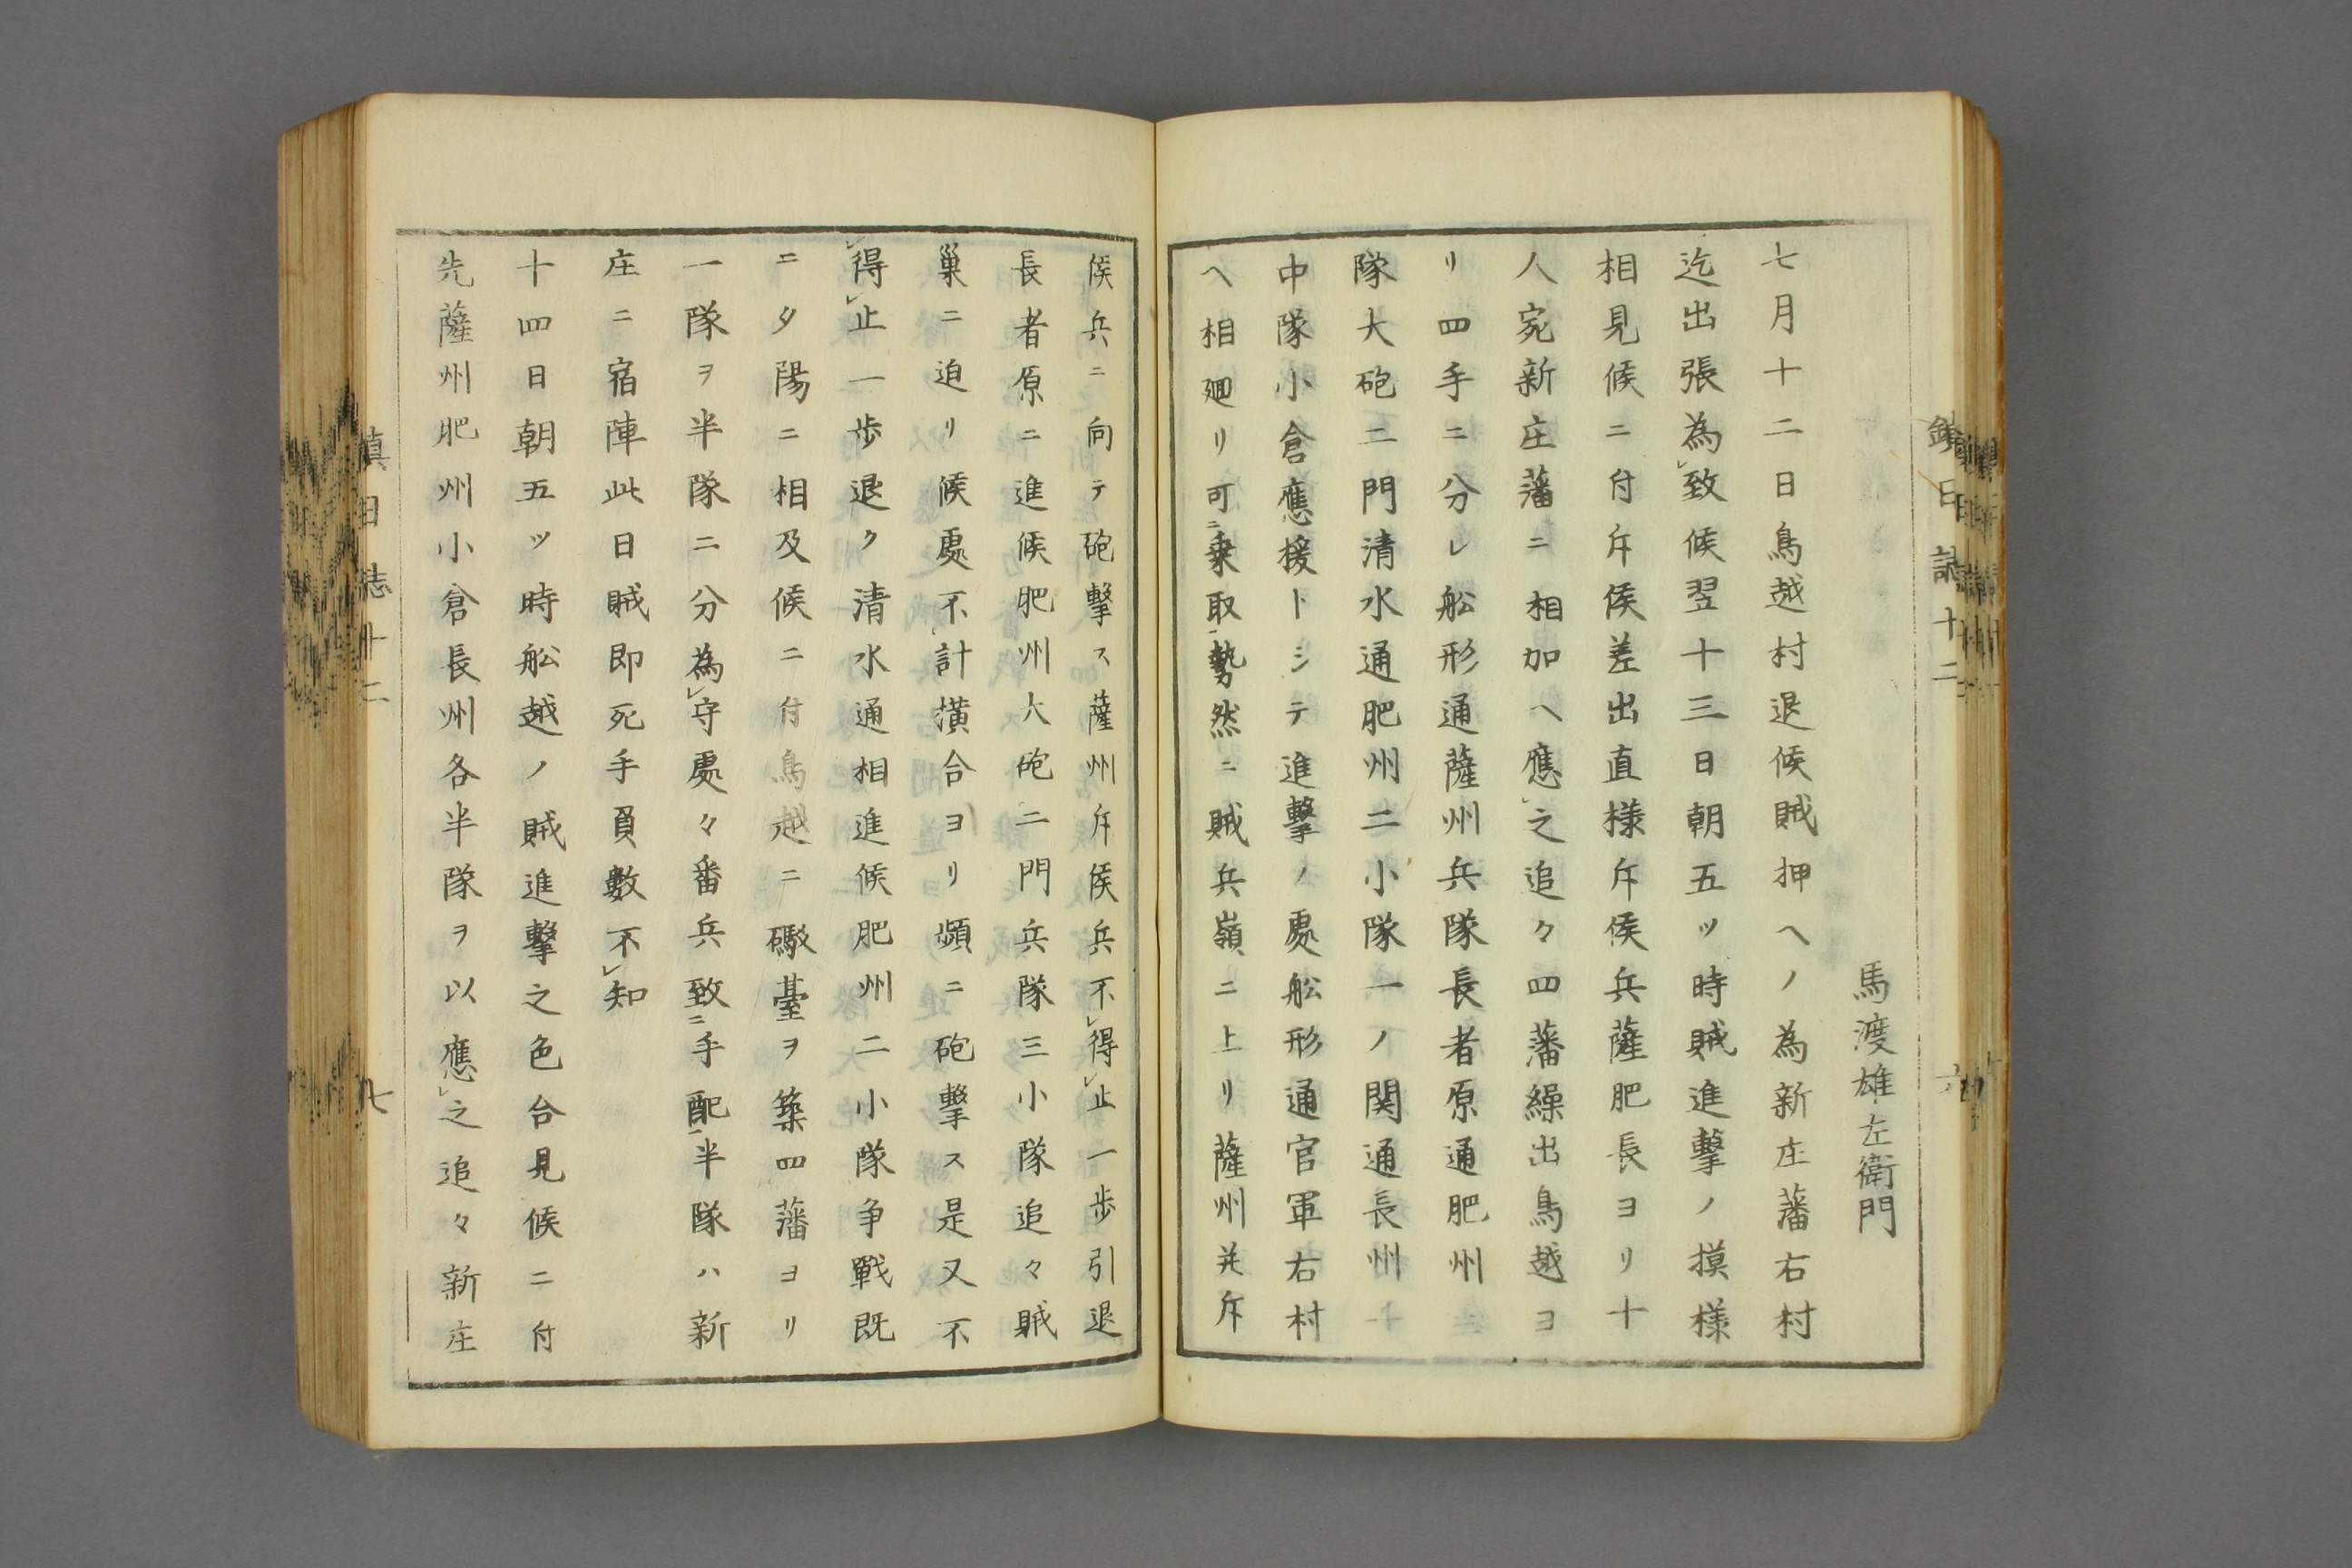 馬渡雄左衛門
七月十二日鳥越村退候賊押ヘノ為新庄藩右村
迄出張為㆑致候翌十三日朝五ツ時賊進撃ノ摸様
相見候ニ付斥候差出直様斥候兵薩肥長ヨリ十
人宛新庄藩ニ相加ヘ應㆑之追々四藩繰出鳥越ヨ
リ四手ニ分レ舩形通薩州兵隊長者原通肥州
隊大砲二門清水通肥州二小隊一ノ関通長州
中隊小倉應援トシテ進撃ノ處舩形通官軍右村
ヘ相廻リ可㆓乗取㆒勢然ニ賊兵嶺ニ上リ薩州并斥
候兵ニ向テ砲撃ス薩州斥候兵不㆑得㆑止一歩引退
長者原ニ進候肥州大砲二門兵隊三小隊追々賊
巣ニ迫リ候處不㆑計横合ヨリ頻ニ砲撃ス是又不
㆑得㆑止一歩退ク清水通相進候肥州二小隊争戰既
ニ夕陽ニ相及候ニ付鳥越ニ礮臺ヲ築四藩ヨリ
一隊ヲ半隊ニ分為㆑守處々番兵致㆓手配㆒半隊ハ新
庄ニ宿陣此日賊即死手負數不㆑知
十四日朝五ツ時舩越ノ賊進撃之色合見候ニ付
先薩州肥州小倉長州各半隊ヲ以應㆑之追々新庄
鎮日誌十二
六
鎮日志十二
七